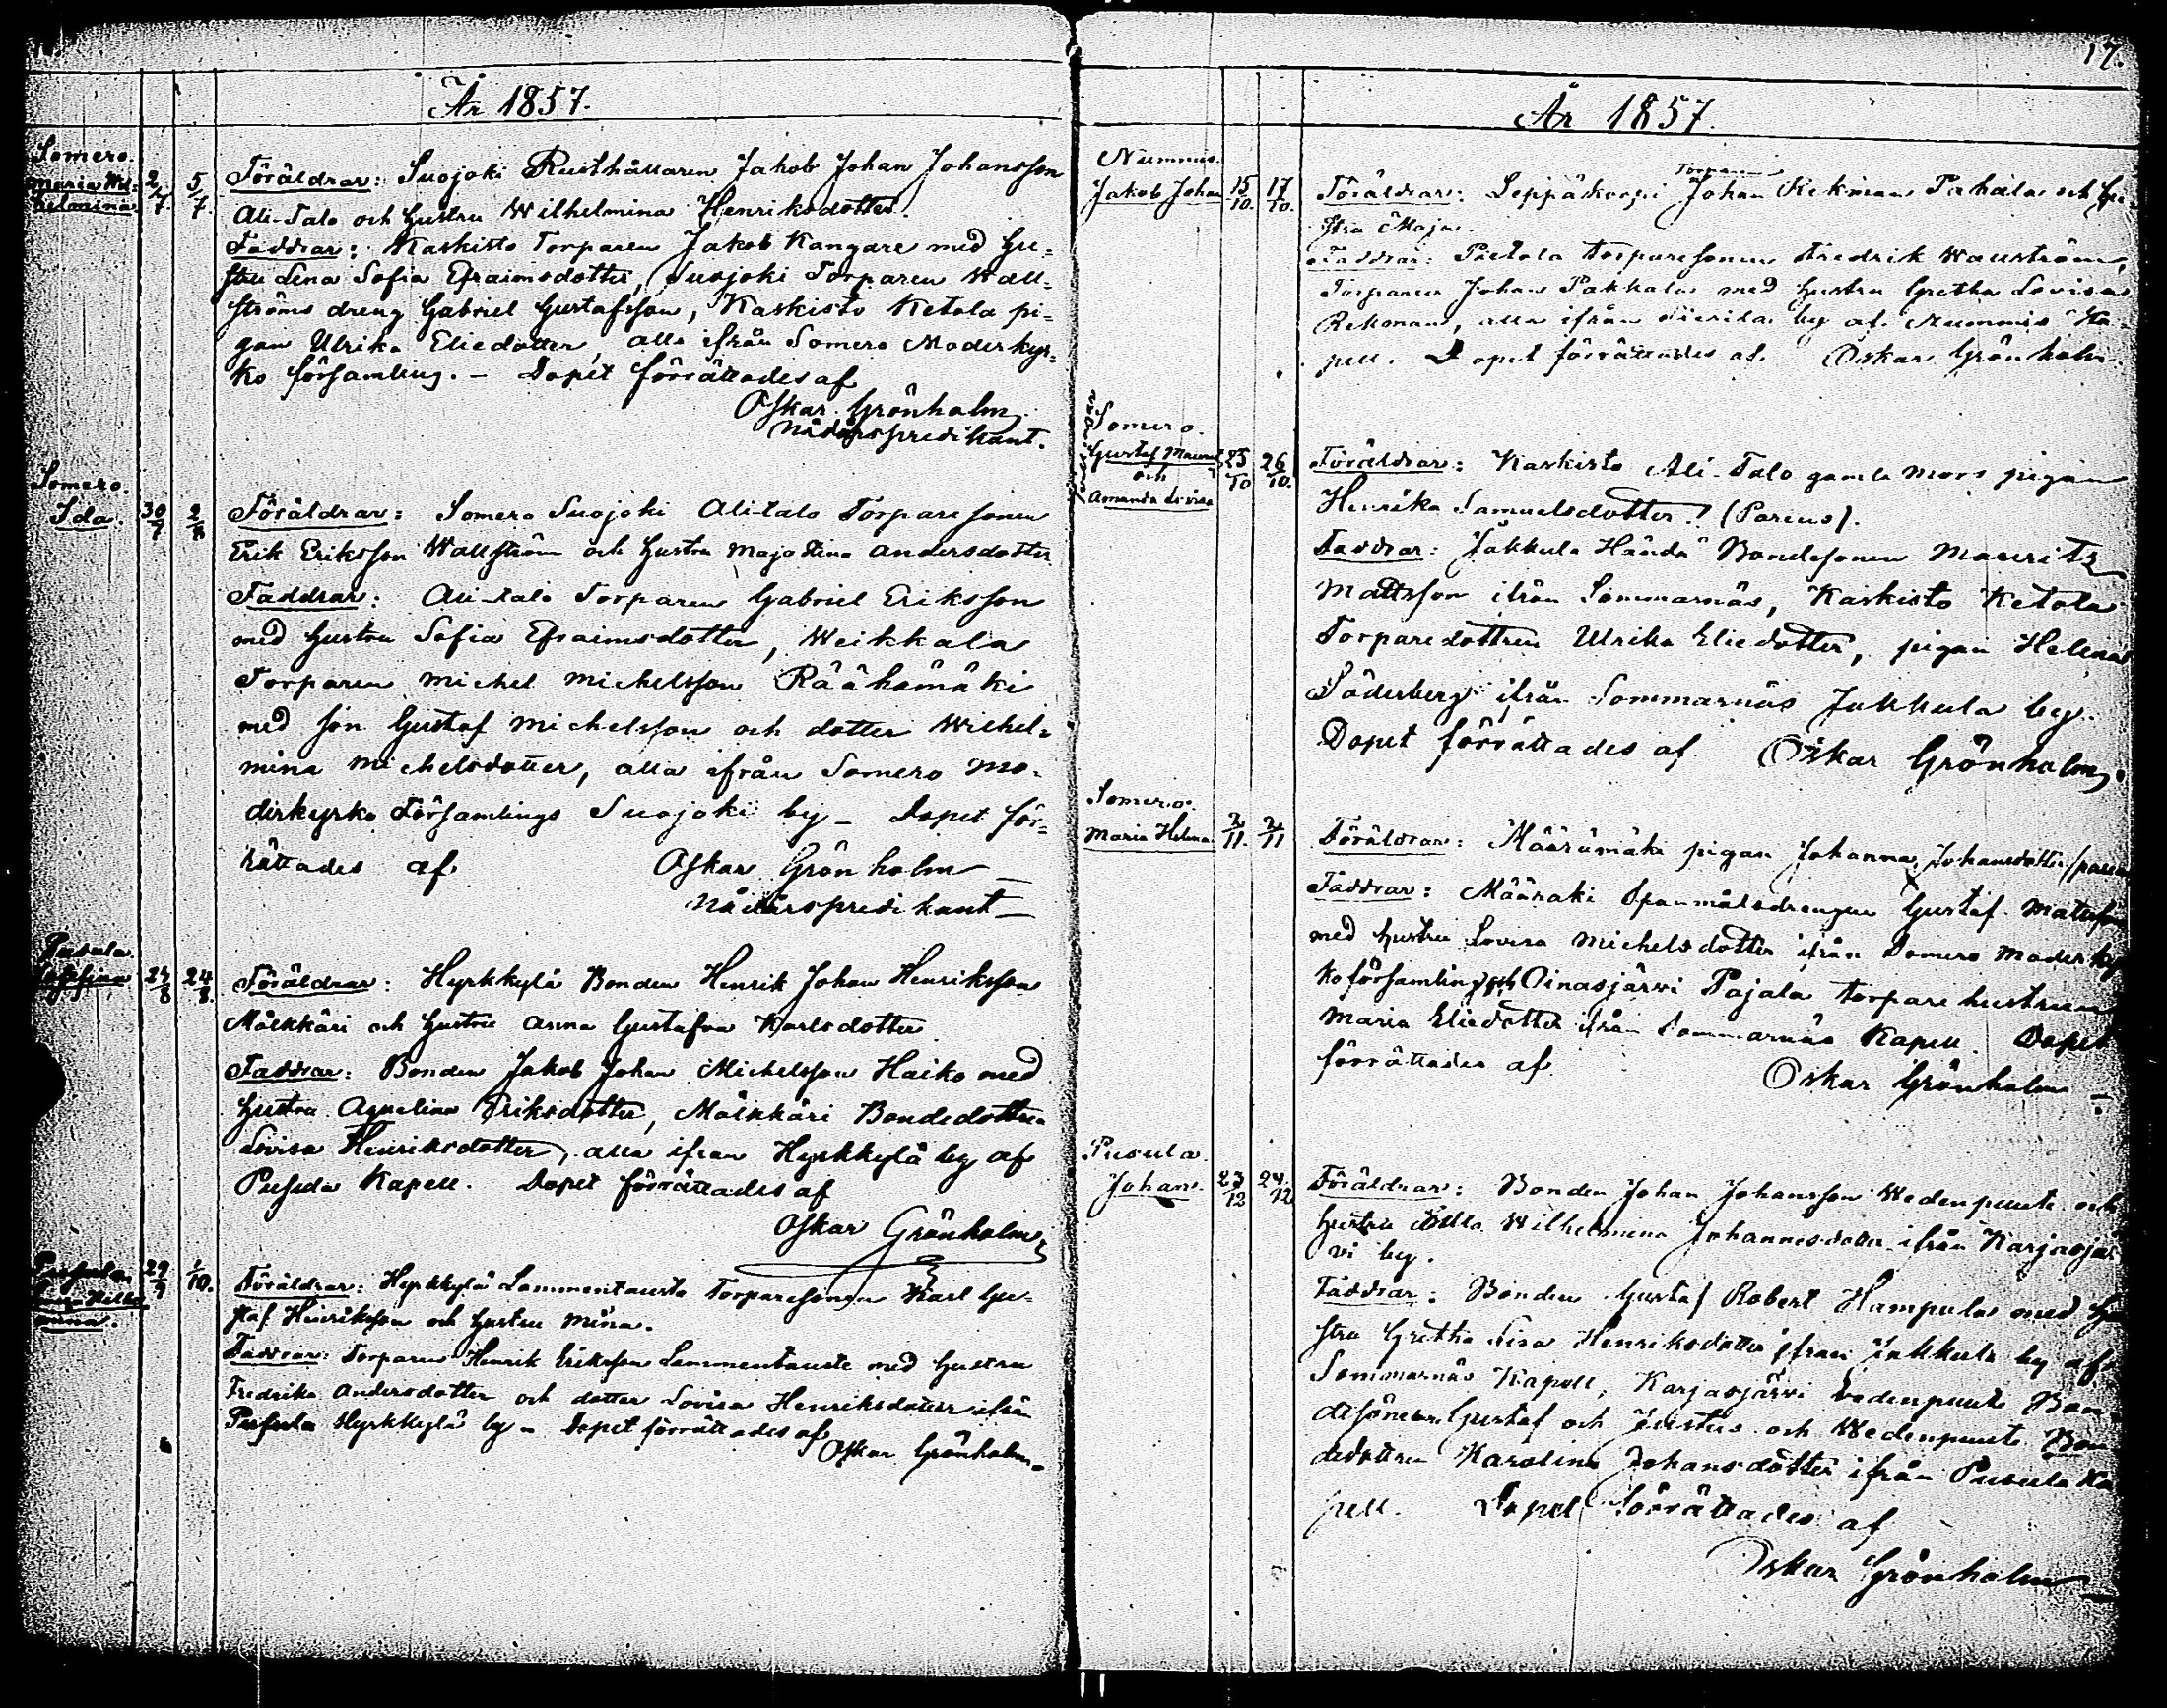 År 1857.
Somero.
Maria Wil=
helmina.
2/7.
5/7.
Föräldrar: Suojoki Rusthållaren Jakob Johan Johansson
Ali-Talo och hustru Wilhelmina Henriksdotter.
Faddrar: Kaskisto Torparen Jakob Kangare med Hu=
stru Lena Sofia Efraimsdotter, Suojoki Torparen Wall=
ströms dreng Gabriel Gustafsson, Kaskisto Ketola pi=
gan Ulrika Eliedotter alla ifrån Somero Moderkyr=
ko församling. – Dopet förrättades af
Oskar Grönholm
Nådårspredikant.
Somero.
Ida.
30/7
2/8
Föräldrar: Somero Suojoki Alitalo Torparesonen
Erik Eriksson Wallström och hustru Maja Stina Andersdotter
Faddrar: Ali-talo Torparen Gabriel Eriksson
med hustru Sofia Efraimsdotter, Weikkala
Torparen Michel Michelsson Räähämäki
med son Gustaf Michelsson och dotter Wilhel=
mina Michelsdotter, alla ifrån Somero Mo-
derkyrko Församlings Suojoki by – Dopet för=
rättades af Oskar Grönholm –
Nådårspredikant –
Pusula
23/8
24/8.
Föräldrar: Hyrkkylä Bonden Henrik Johan Henriksson
Mälkkäri och hustru Anna Gustafva Karlsdotter
Faddrar: Bonden Jakob Johan Michelsson Haiko med
hustru Aqvelina Eriksdotter, Mälkkäri Bondedottren
Lovisa Henriksdotter, alla ifrån Hyrkkylä by af
Pusula Kapell. Dopet förrättades af
Oskar Grönholm
Pusula.
29/9
1/10.
Föräldrar: Hyrkkylä Lammentausta Torparesonen Karl Gu=
staf Henriksson och hustru Mina.
Faddrar: Torparen Henrik Eriksson Lammentausta med hustru
Fredrika Andersdotter och dotter Lovisa Henriksdotter ifrån
Pusula Hyrkkylä by – Dopet förrättades af
Oskar Grönholm.
17.
År 1857.
Nummis.
Jakob Johan
15/10.
17/10.
Torparen
Föräldrar: Leppäkorpi Johan Rekman Pahala och hu-
stru Maja.
Faddrar: Pietola torparesonen Fredrik Wauström,
Torparen Johan Pakkala med hustru Gretha Lovisa
Rekman, alla ifrån by af Nummis Ka-
pell. Dopet förrättades af Oskar Grönholm.
Somero.
Gustaf Maurits
och
Amanda Lovisa
25/10
26/10.
Föräldrar: Kaskisto Ali-Talo gamla Mors pigan
Henrika Samuelsdotter! (Parens).
Faddrar: Jakkula Händä Bondesonen Maurits
Mattsson ifrån Sommarnäs, Kaskisto Ketola
Torparedottren Ulrika Eliedotter, pigan Helena
Söderberg ifrån Sommarnäs Jakkula by.
Dopet förrättades af Oskar Grönholm.
Somero.
Maria Helena
2/11.
2/11
Föräldrar: Määrämäki pigan Johanna Johansdotter
Faddrar: Määraki Spanmålsdrengen Gustaf Matsson
med hustru Lovisa Michelsdotter ifrån Somero Moderkyr
koförsamling och Oinasjärvi Pajala torpare hustrun
Maria Eliedotter ifrån Sommarnäs Kapell. Dopet
förrättades af Oskar Grönholm –
Pusula.
Johan.
23/12
24/12
Föräldrar: Bonden Johan Johansson Wedenpuute och
hustru Ulla Wilhelmina Johannesdotter ifrån Karjasjär
vi by.
Faddrar: Bonden Gustaf Robert Hampula med Hu
stru Gretha Lisa Henriksdotter ifrån Jakkula by af
Sommarnäs Kapell, Karjasjärvi Vedenpuute Bon-
desönerne Gustaf och Justus och Wedenpuute Bon
dedottren Karolina Johansdotter ifrån Pusula Ka
pell. Dopet förrättades af
Oskar Grönholm